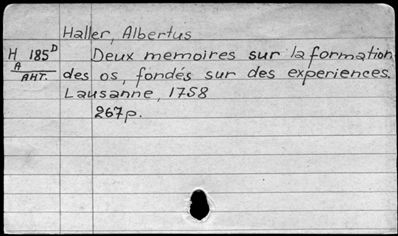 Haller, Albertus
H 185D Deux memoires sur la formation
A
AHT. des os, fondés sur des experiences.
Lausanne, 1758
267p.